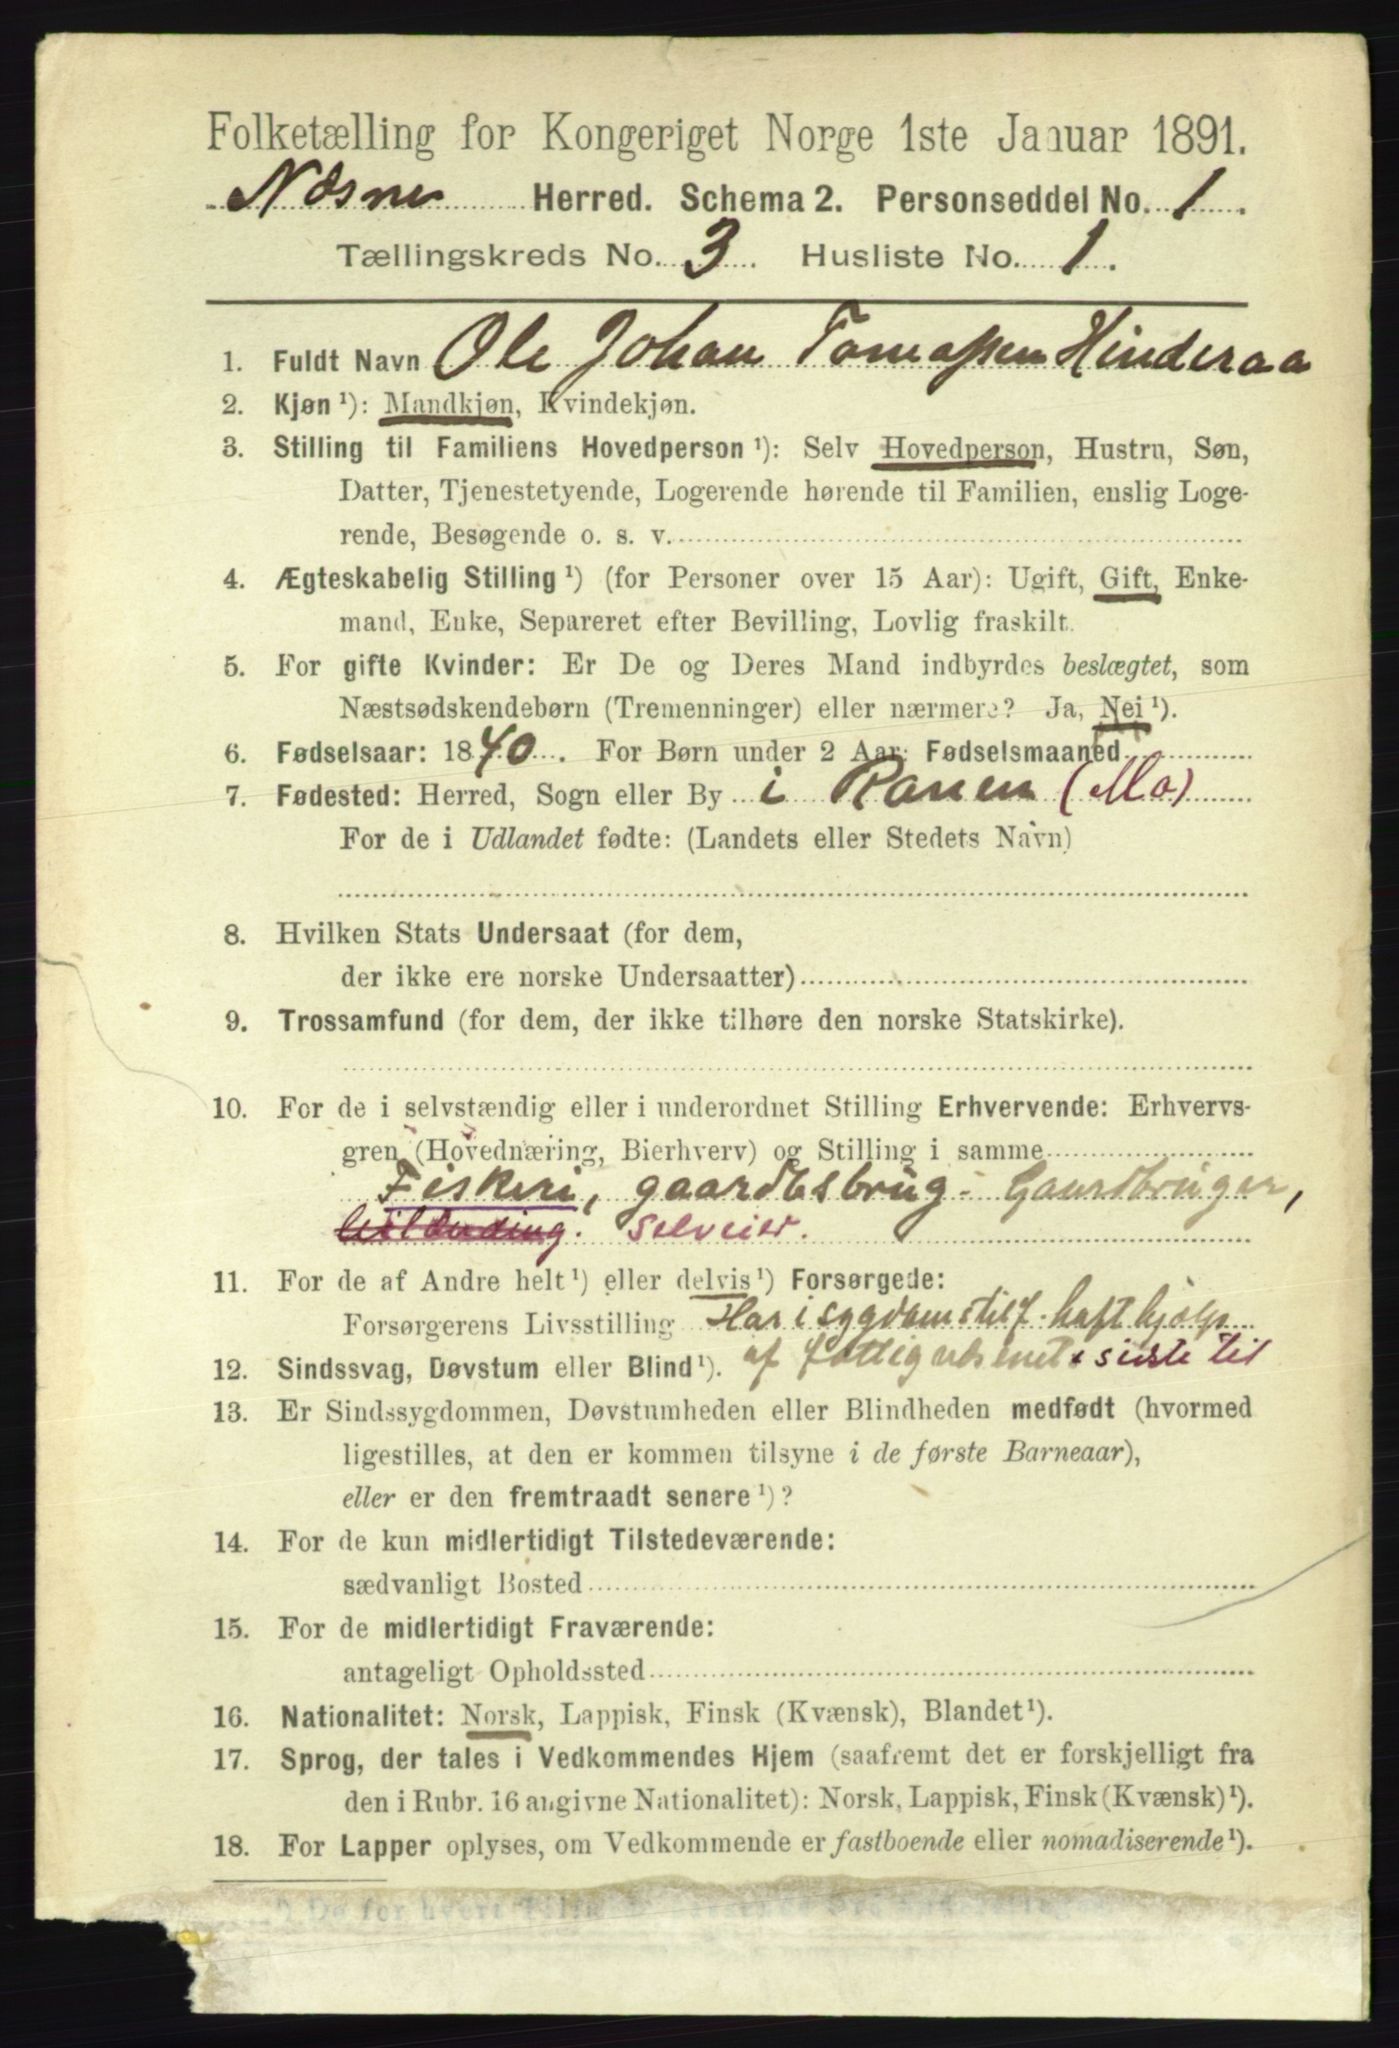 Folketælling for Kongeriget Norge 1ste Januar 1891.
Næsne Herred. Schema 2. Personseddel No. 1.
Tællingskreds No. 3. Husliste No. 1.
1. Fuldt Navn Ole Johan Tomassen Hinderaa
2. Kjøn ¹): Mandkjøn, Kvindekjøn.
3. Stilling til Familiens Hovedperson ¹): Selv Hovedperson, Hustru, Søn,
Datter, Tjenestetyende, Logerende hørende til Familien, enslig Loge-
rende, Besøgende o. s. v.
4. Ægteskabelig Stilling ¹) (for Personer over 15 Aar): Ugift, Gift, Enke-
mand, Enke, Separeret efter Bevilling, Lovlig fraskilt.
5. For gifte Kvinder: Er De og Deres Mand indbyrdes beslægtet, som
Næstsødskendebørn (Tremenninger) eller nærmere? Ja, Nei ¹).
6. Fødselsaar: 1840. For Børn under 2 Aar: Fødselsmaaned
7. Fødested: Herred, Sogn eller By i Ranen (Mo)
For de i Udlandet fødte: (Landets eller Stedets Navn)
8. Hvilken Stats Undersaat (for dem,
der ikke ere norske Undersaatter)
9. Trossamfund (for dem, der ikke tilhøre den norske Statskirke).
10. For de i selvstændig eller i underordnet Stilling Erhvervende: Erhvervs-
gren (Hovednæring, Bierhverv) og Stilling i samme
Fiskeri, gaardsbrug - Gaardbruger,
selveier.
11. For de af Andre helt ¹) eller delvis ¹) Forsørgede:
Forsørgerens Livsstilling Har i sygdomstilf. haft hjælp
12. Sindssvag, Døvstum eller Blind ¹). af fattigvæsenet sidste til
13. Er Sindssygdommen, Døvstumheden eller Blindheden medfødt (hvormed
ligestilles, at den er kommen tilsyne i de første Barneaar),
eller er den fremtraadt senere ¹)?
14. For de kun midlertidigt Tilstedeværende:
sædvanligt Bosted
15. For de midlertidigt Fraværende:
antageligt Opholdssted
16. Nationalitet: Norsk, Lappisk, Finsk (Kvænsk), Blandet ¹).
17. Sprog, der tales i Vedkommendes Hjem (saafremt det er forskjelligt fra
den i Rubr. 16 angivne Nationalitet): Norsk, Lappisk, Finsk (Kvænsk) ¹).
18. For Lapper oplyses, om Vedkommende er fastboende eller nomadiserende ¹).
¹) De for hvert